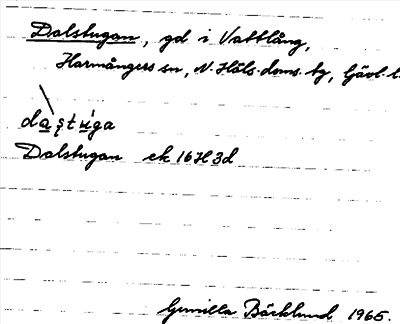 Dalstugan, gd i Vattlång,
Harmångers sn, N. Häls. doms. tg, Gävl. l.
daştúga
Dalstugan ek 16H3d
Gunilla Bäcklund 1965.